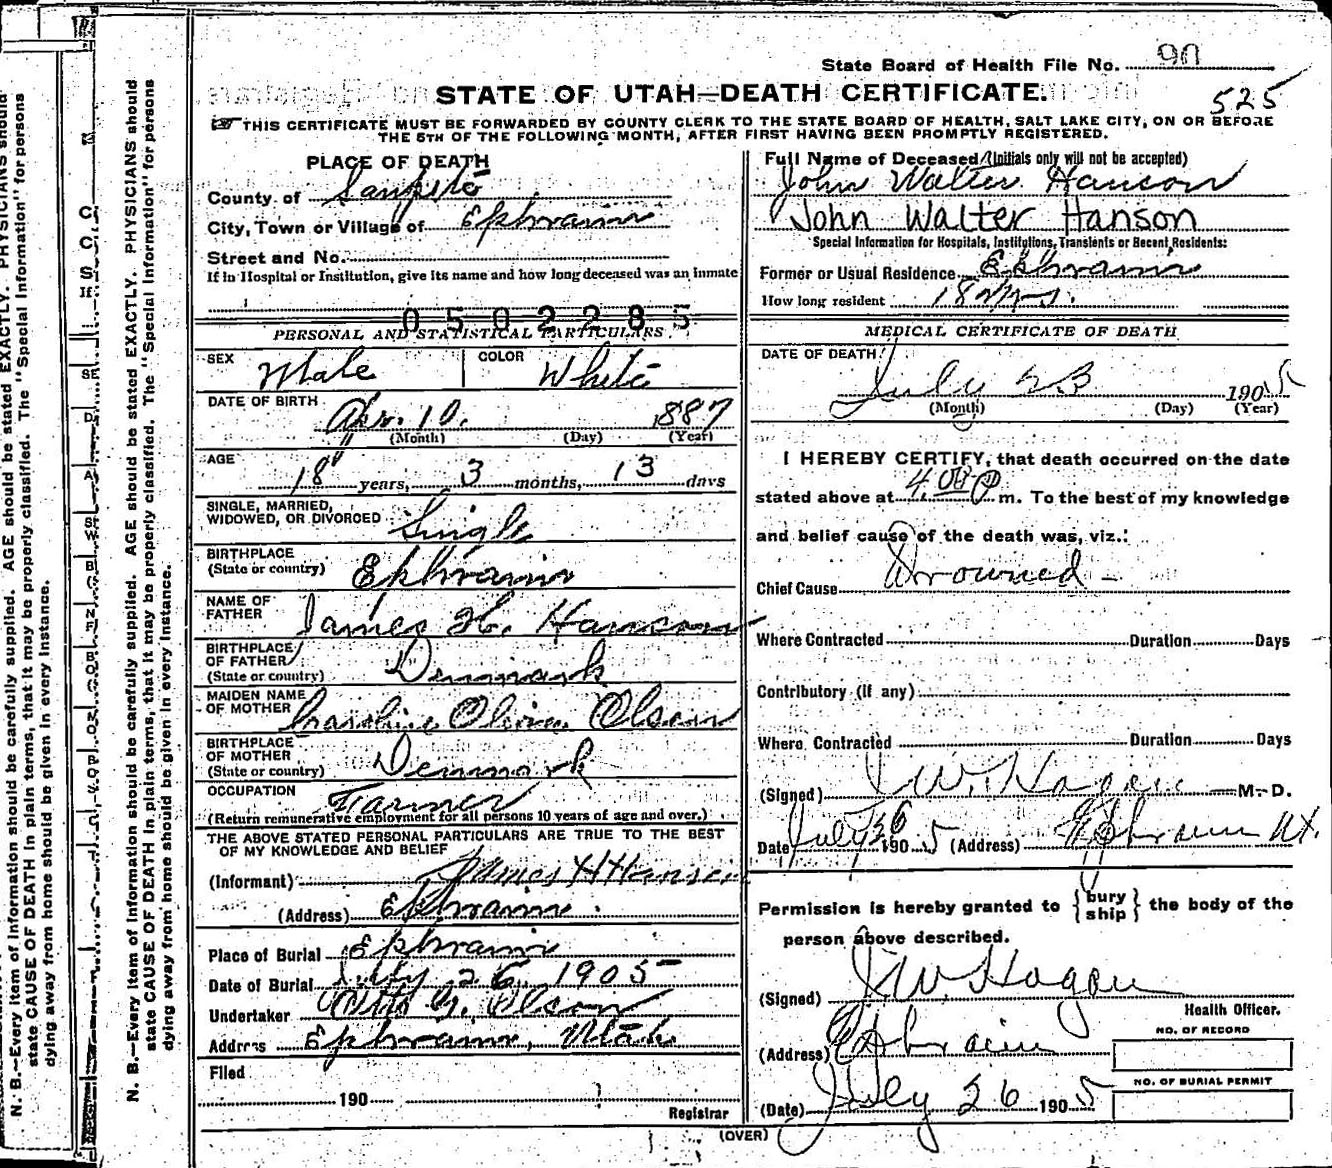 State Board of Health File No. 90
STATE OF UTAH—DEATH CERTIFICATE.
525
THIS CERTIFICATE MUST BE FORWARDED BY COUNTY CLERK TO THE STATE BOARD OF HEALTH, SALT LAKE CITY, ON OR BEFORE
THE 5TH OF THE FOLLOWING MONTH, AFTER FIRST HAVING BEEN PROMPTLY REGISTERED.
PLACE OF DEATH
County of Sanpete
City, Town or Village of Ephraim
Street and No.
If in Hospital or Institution, give its name and how long deceased was an inmate
0502285
PERSONAL AND STATISTICAL PARTICULARS.
SEX Male COLOR White
DATE OF BIRTH Apr. 10. 1887
(Month) (Day) (Year)
AGE 18 years, 3 months, 13 days
SINGLE, MARRIED,
WIDOWED, OR DIVORCED Single
BIRTHPLACE
(State or country) Ephraim
NAME OF
FATHER James H. Hanson
BIRTHPLACE
OF FATHER
(State or country) Denmark
MAIDEN NAME
OF MOTHER Caroline Olsen
BIRTHPLACE
OF MOTHER
(State or country) Denmark
OCCUPATION Farmer
(Return remunerative employment for all persons 10 years of age and over.)
THE ABOVE STATED PERSONAL PARTICULARS ARE TRUE TO THE BEST
OF MY KNOWLEDGE AND BELIEF
(Informant) James H Hansen
(Address) Ephraim.
Place of Burial Ephraim
Date of Burial July 26, 1905
Undertaker Olson
Address Ephraim, Utah
Filed
190
Registrar
Full Name of Deceased (Initials only will not be accepted)
John Walter Hanson
John Walter Hanson
Special Information for Hospitals, Institutions, Transients or Recent Residents:
Former or Usual Residence Ephraim
How long resident 18 yrs.
MEDICAL CERTIFICATE OF DEATH
DATE OF DEATH
July 23 1905
(Month) (Day) (Year)
I HEREBY CERTIFY, that death occurred on the date
stated above at 4.00 P m. To the best of my knowledge
and belief cause of the death was, viz.:
Chief Cause Drowned -
Where Contracted Duration Days
Contributory (if any)
Where Contracted Duration Days
(Signed) J W. Hagen M. D.
Date July 26 1905 (Address) Ephraim Ut.
Permission is hereby granted to {bury ship} the body of the
person above described.
(Signed) J W Hagen
Health Officer.
(Address) Ephraim
NO. OF RECORD
NO. OF BURIAL PERMIT
(Date) July 26 1905
(OVER)
N. B.—Every item of information should be carefully supplied. AGE should be stated EXACTLY. PHYSICIANS should
state CAUSE OF DEATH in plain terms, that it may be properly classified. The "Special Information" for persons
dying away from home should be given in every instance.
N. B.—Every item of information should be carefully supplied. AGE should be stated EXACTLY. PHYSICIANS should
state CAUSE OF DEATH in plain terms, that it may be properly classified. The "Special Information" for persons
dying away from home should be given in every instance.